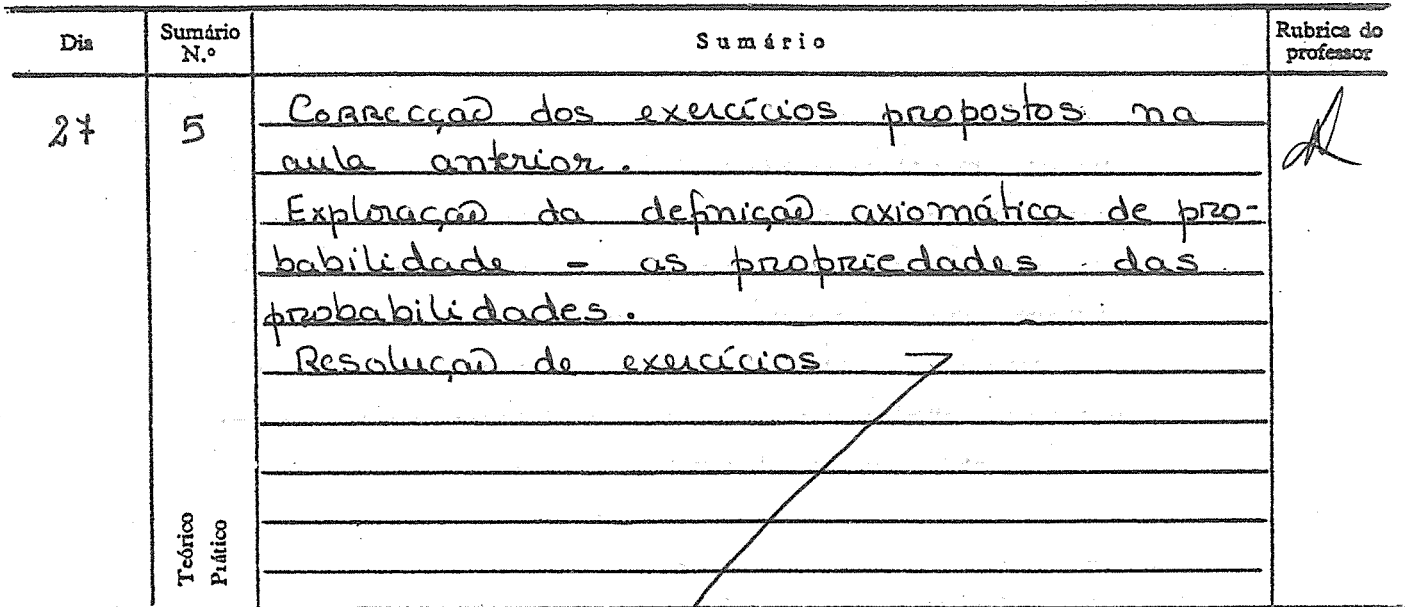 Dia Sumário N.º Sumário Rubrica do professor
27 5 Correcção dos exercícios propostos na
aula anterior.
Exploração da definição axiomática de pro-
babilidade - as propriedades das
probabilidades.
Resolução de exercícios
Teórico
Prático